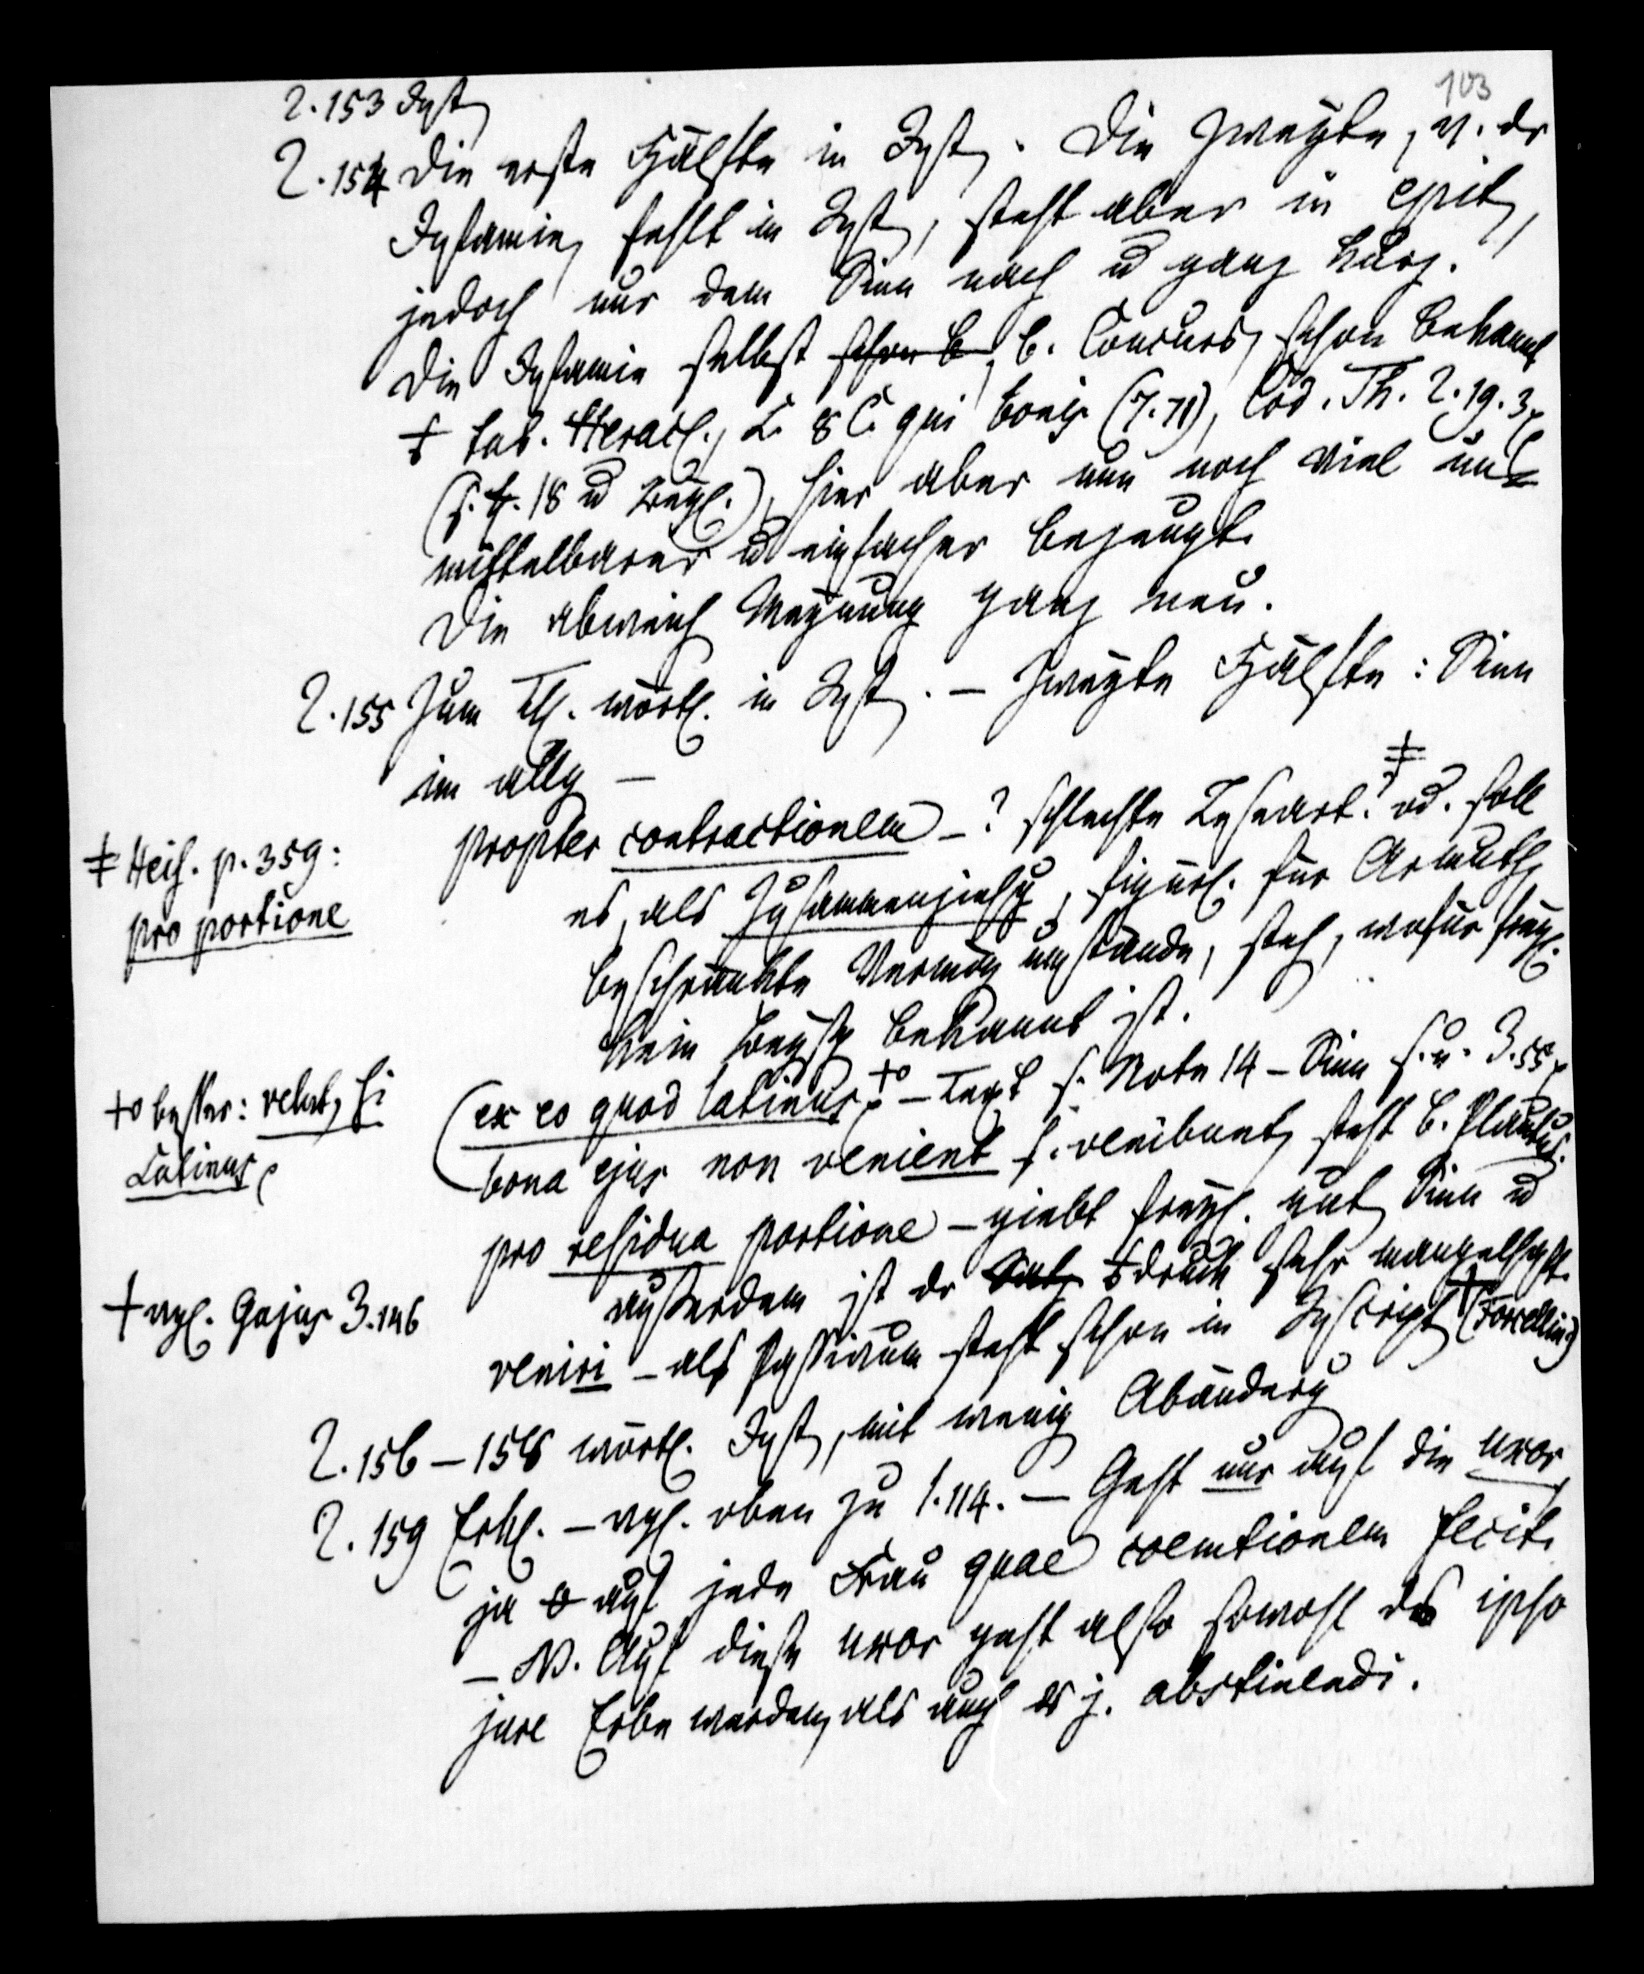 103
2.153 Inst.
2.154 Die erste Hälfte in Inst. Die zweyte, v. der
Infamie, fehlt in Inst., steht aber in Epit.,
jedoch nur dem Sinn nach u ganz kurz.
Die Infamie selbst schon b. b. Concurs, schon bekannt
tab. Heracl., L. 8 C. qui bonis (7.71), Cod. Th. 2.19.3
(s. 18 u Beyl.), hier aber nun noch viel un
mittelbarer u einfacher bezeugt.
Die abweich Meynung ganz neu.
2.155 Zum Th. wörtl. in Inst. – Zweyte Hälfte: Sinn
im allg –
propter contractionem – ? schlechte Leseart? ǂ od. soll
es, als Zusammenziehg, figürl. für Armuth,
beschränkte Vermög umstände, steh, wofür freyl.
kein Beysp bekannt ist.
ǂ Heis. p. 359:
pro portione
(ex eo quod Latinus +o – Text s. Note 14 – Sinn s. u. 3.55
+o besser: velut, si
Latinus
bona ejus non venient s. venibunt, steht b. Plautus.
pro residua portione – giebt freyl. gut Sinn u
außerdem ist der druck sehr mangelhaft.
+ vgl. Gajus 3.146
veniri – als Passivum steht schon in Inschrift + (Forcellini)
2.156 – 158 wörtl. Inst., mit wenig Abänderg
2.159 Erkl. – vgl. oben zu 1.114. – Geht nur auf die uxor
ja auf jede Frau quae coemtionem fecit.
– N. Auf diese uxor geht also sowohl das ipso
jure Erbe werden, als auch das j. abstinendi.